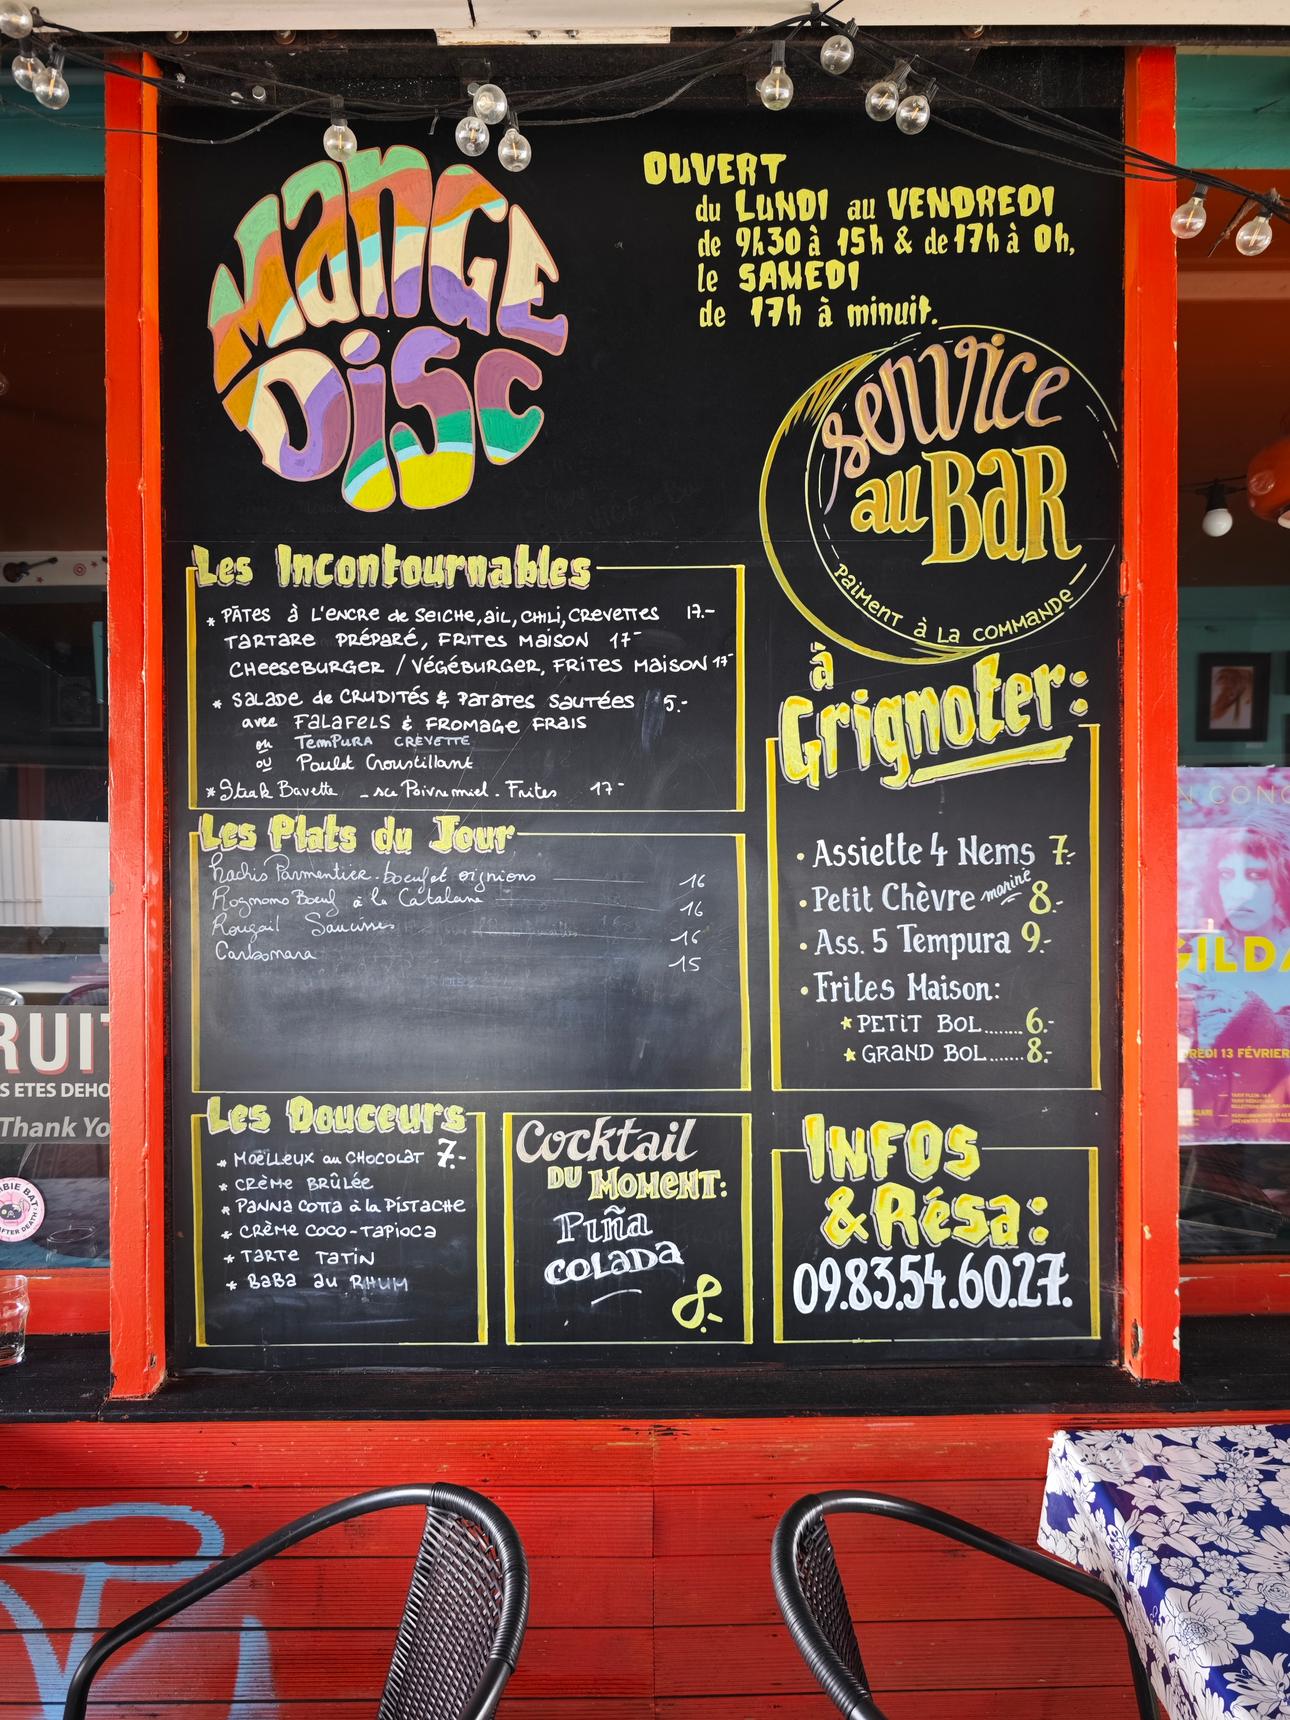 Mange
Disc
OUVERT
du LUNDI au VENDREDI
de 9h30 à 15h & de 17h à 0h,
le SAMEDI
de 17h à minuit.
service
au BaR
Paiment à La commande
Les Incontournables
* PÂTES à L'ENCRE de SEICHE, AIL, CHILI, CREVETTES 17.-
TARTARE PRÉPARÉ, FRITES MAISON 17-
CHEESEBURGER / VÉGÉBURGER, FRITES MAISON 17-
* SALADE de CRUDITÉS & PATATES SAUTÉES 5.-
avec FALAFELS & FROMAGE FRAIS
ou TEMPURA CREVETTE
ou Poulet Croustillant
* Steak Bavette - sce Poivre miel. Frites 17-
Les Plats du Jour
Hachis Parmentier. boeuf et oignions 16
Rognons Boeuf à la Catalane 16
Rougail Saucisses 16
Carbonara 15
à
Grignoter:
• Assiette 4 Nems 7.-
• Petit Chèvre mariné 8.-
• Ass. 5 Tempura 9.-
• Frites Maison:
★ PETIT BOL.......6.-
★ GRAND BOL.......8.-
Les Douceurs
* MOËLLEUX au CHOCOLAT 7.-
* CRÈME BRÛLÉE
* PANNA COTTA à la PISTACHE
* CRÈME COCO-TAPIOCA
* TARTE TATIN
* BABA au RHUM
Cocktail
DU MOMENT:
Piña
COLADA
8.-
INFOS
& Résa:
09.83.54.60.27.
RUIT
S ETES DEHO
Thank Yo
BIE BAT
AFTER DEATH
N CONC
GILDA
DREDI 13 FÉVRIER